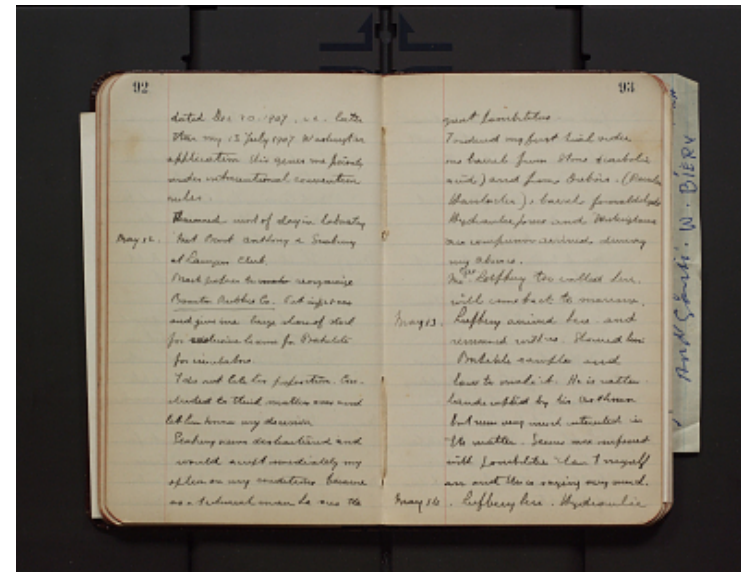 92
dated Dec 20. 1907. i.e. later
than my 13 July 1907 Washington
application this gives me priority
under international convention
rules.
Remained most of day in laboratory
May 12. Met Brock Anthony & Seabury
at Lawyers Club.
Brock proposes to reorganize
Boonton Rubber Co. Cut
and give me large share of stock
for exclusive license for Bakelite
for incubators.
I do not like his proposition. Con-
cluded to think matter over and
let him know my decision
Seabury seems disheartened and
would accept immediately my
offer on any conditions because
as a technical man he sees the
93
great possibilities.
I ordered my first trial order
one barrel from Stone (carbolic
acid) and from
1 barrel formaldehyde
Hydraulic press and
air compressor arrived during
my absence.
Mr. Leffbery too called here.
will come back to morrow.
May 13. Leffbery arrived here and
remained with us. Showed him
Bakelite samples and
how to make it. He is rather
handicapped by his asthma
but seems very much interested in
the matter. Seems more impressed
with possibilities than I myself
am and this is saying very much.
May 14. Leffbery here. Hydraulic
W. BIERY